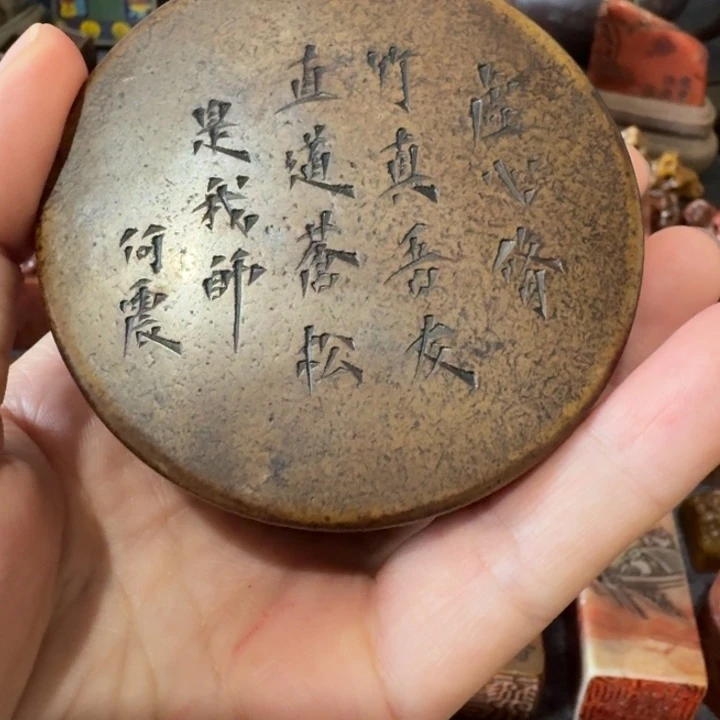 虛心脩
竹真吾友
直道蒼松
是我師
何震